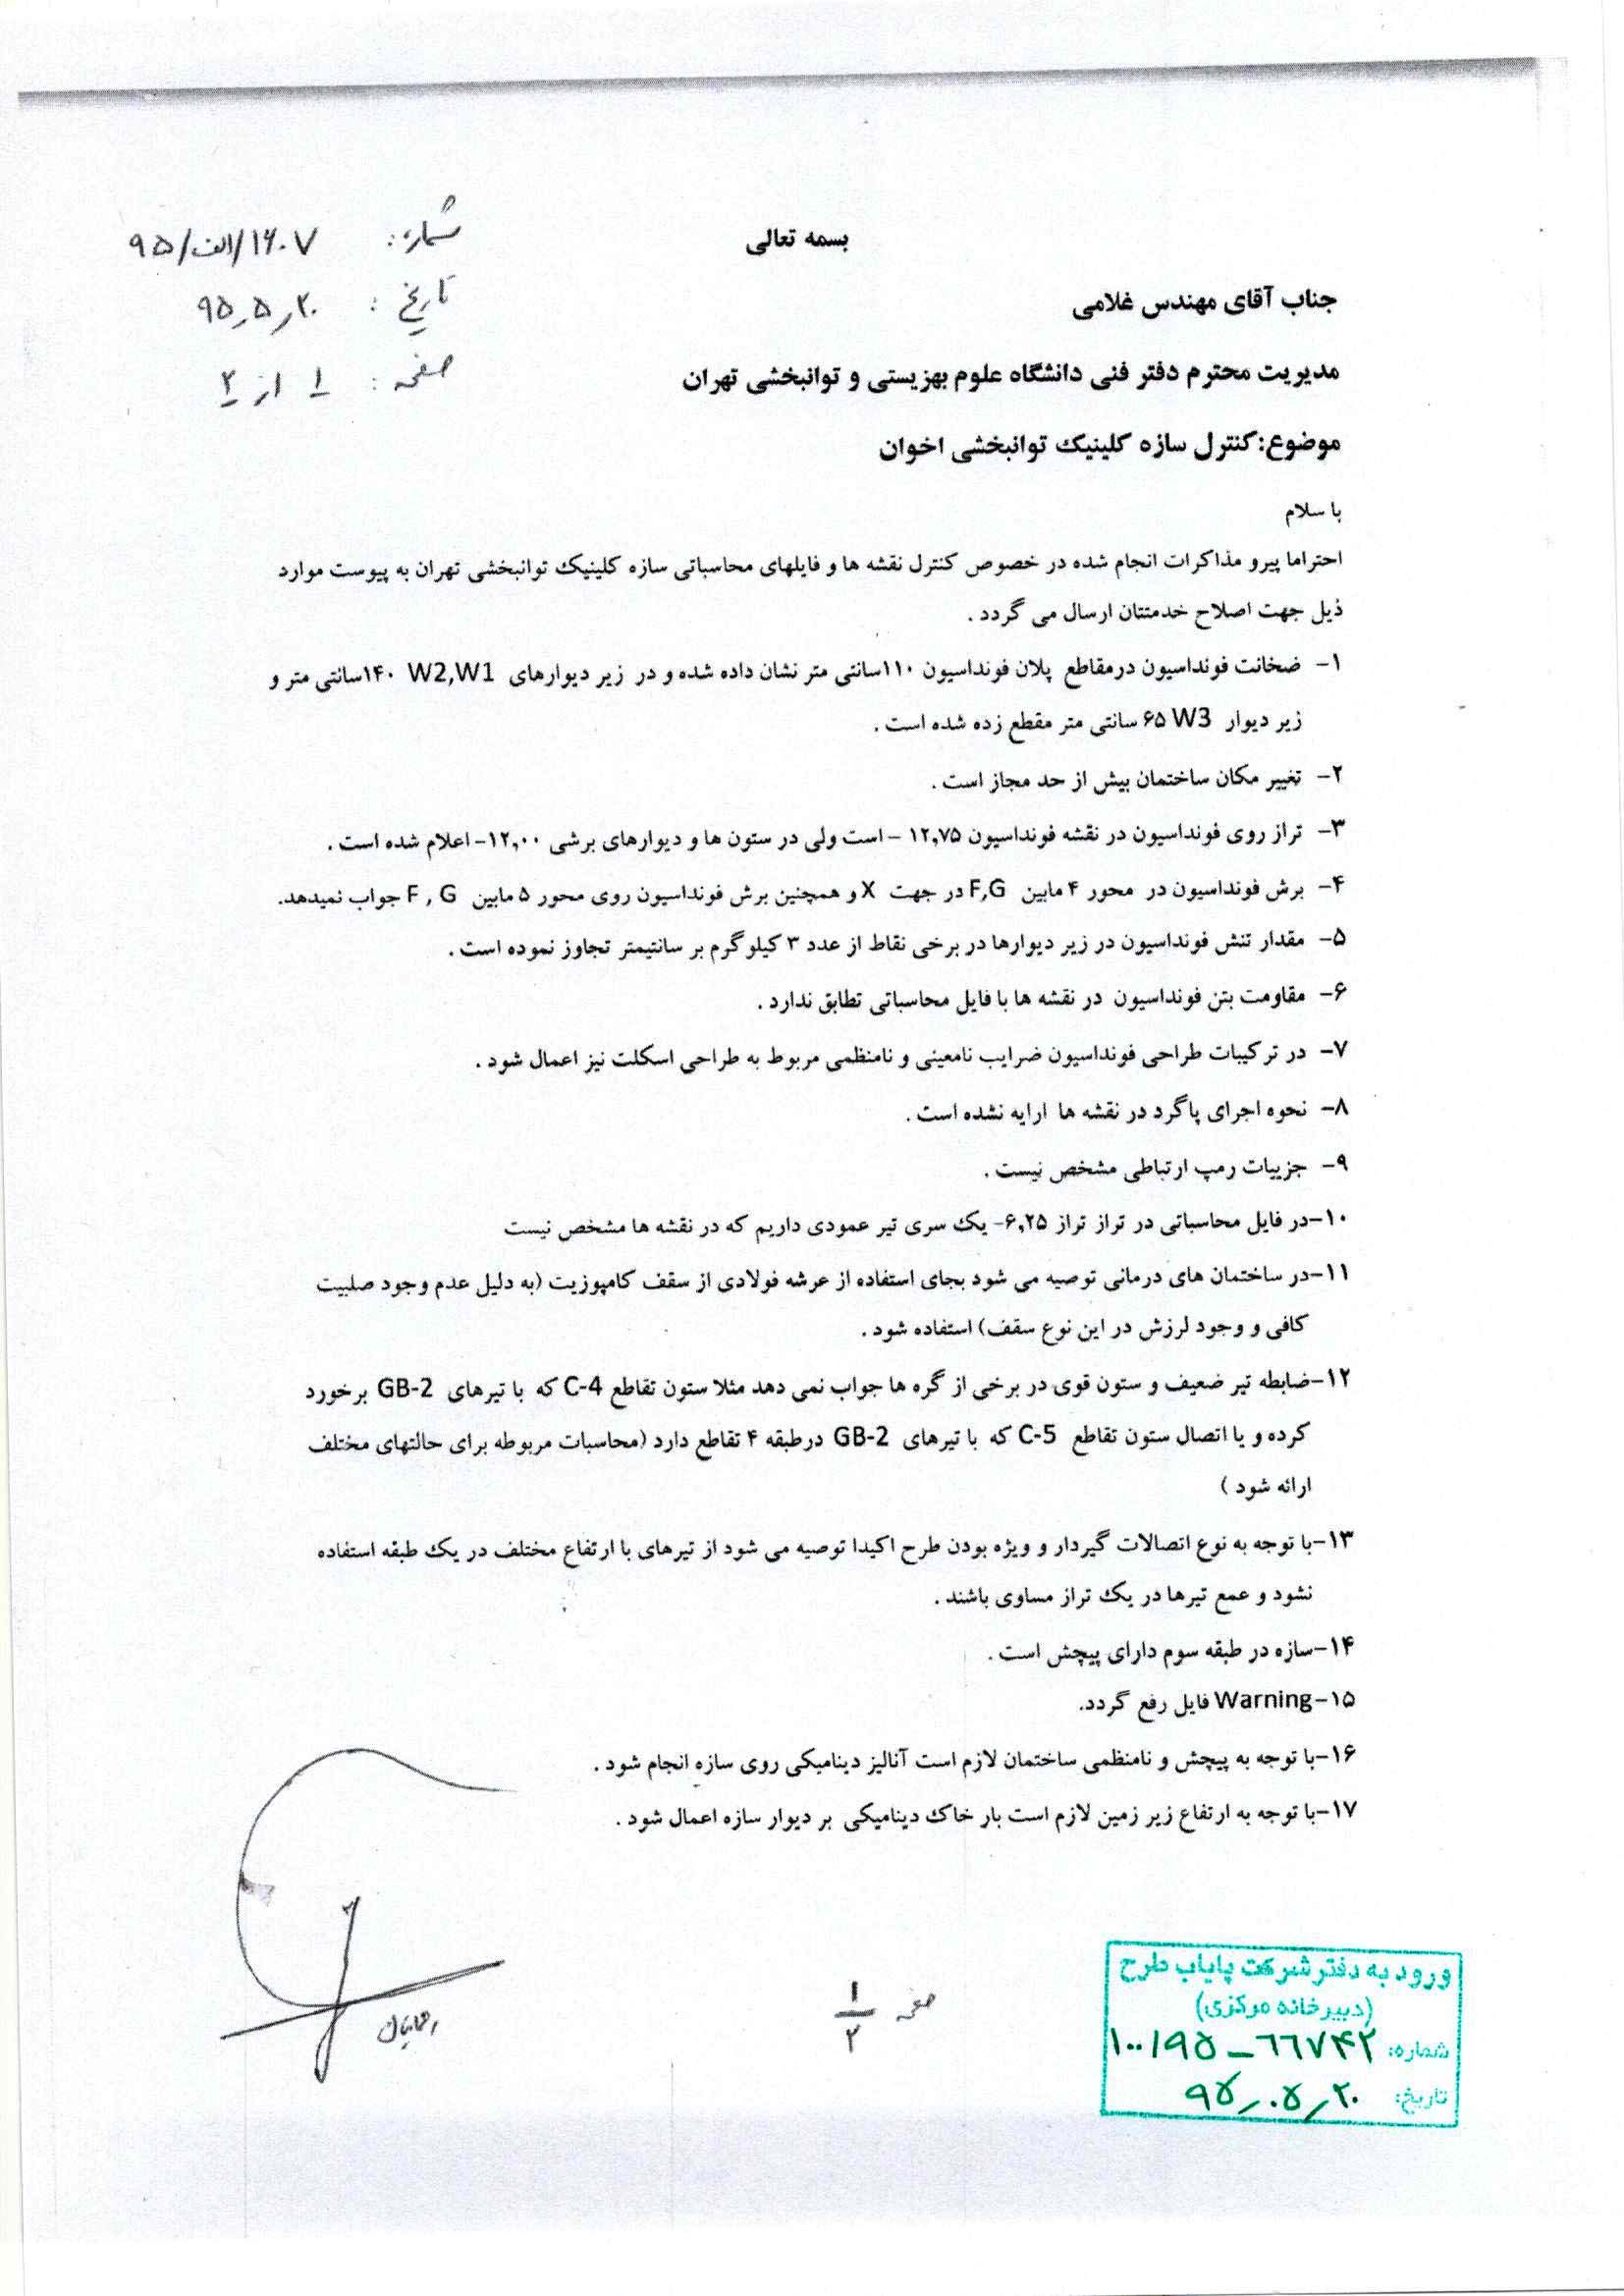 بسمه تعالی
شماره: ۱۶۰۷/الف/۹۵
تاریخ: ۹۵٫۵٫۲۰
صفحه: ۱ از ۲
جناب آقای مهندس غلامی
مدیریت محترم دفتر فنی دانشگاه علوم بهزیستی و توانبخشی تهران
موضوع:کنترل سازه کلینیک توانبخشی اخوان
با سلام
احتراما پیرو مذاکرات انجام شده در خصوص کنترل نقشه ها و فایلهای محاسباتی سازه کلینیک توانبخشی تهران به پیوست موارد
ذیل جهت اصلاح خدمتتان ارسال می گردد .
۱- ضخانت فونداسیون درمقاطع پلان فونداسیون ۱۱۰سانتی متر نشان داده شده و در زیر دیوارهای W2,W1 ۱۴۰سانتی متر و
زیر دیوار W3 ۶۵ سانتی متر مقطع زده شده است .
۲- تغییر مکان ساختمان بیش از حد مجاز است .
۳- تراز روی فونداسیون در نقشه فونداسیون ۱۲,۷۵ – است ولی در ستون ها و دیوارهای برشی ۱۲,۰۰- اعلام شده است .
۴- برش فونداسیون در محور ۴ مابین F,G در جهت X و همچنین برش فونداسیون روی محور ۵ مابین F , G جواب نمیدهد.
۵- مقدار تنش فونداسیون در زیر دیوارها در برخی نقاط از عدد ۳ کیلوگرم بر سانتیمتر تجاوز نموده است .
۶- مقاومت بتن فونداسیون در نقشه ها با فایل محاسباتی تطابق ندارد .
۷- در ترکیبات طراحی فونداسیون ضرایب نامعینی و نامنظمی مربوط به طراحی اسکلت نیز اعمال شود .
۸- نحوه اجرای پاگرد در نقشه ها ارایه نشده است .
۹- جزییات رمپ ارتباطی مشخص نیست .
۱۰-در فایل محاسباتی در تراز تراز ۶,۲۵- یک سری تیر عمودی داریم که در نقشه ها مشخص نیست
۱۱-در ساختمان های درمانی توصیه می شود بجای استفاده از عرشه فولادی از سقف کامپوزیت (به دلیل عدم وجود صلبیت
کافی و وجود لرزش در این نوع سقف) استفاده شود .
۱۲-ضابطه تیر ضعیف و ستون قوی در برخی از گره ها جواب نمی دهد مثلا ستون تقاطع C-4 که با تیرهای GB-2 برخورد
کرده و یا اتصال ستون تقاطع C-5 که با تیرهای GB-2 درطبقه ۴ تقاطع دارد (محاسبات مربوطه برای حالتهای مختلف
ارائه شود )
۱۳-با توجه به نوع اتصالات گیردار و ویژه بودن طرح اکیدا توصیه می شود از تیرهای با ارتفاع مختلف در یک طبقه استفاده
نشود و عمع تیرها در یک تراز مساوی باشند .
۱۴-سازه در طبقه سوم دارای پیچش است .
۱۵-Warning فایل رفع گردد.
۱۶-با توجه به پیچش و نامنظمی ساختمان لازم است آنالیز دینامیکی روی سازه انجام شود .
۱۷-با توجه به ارتفاع زیر زمین لازم است بار خاک دینامیکی بر دیوار سازه اعمال شود .
صفحه ۱/۲
ورود به دفتر شرکت پایاب طرح
(دبیرخانه مرکزی)
شماره: ۱۰۰/۹۵-۶۶۷۴۲
تاریخ: ۹۵٫۰۵٫۲۰